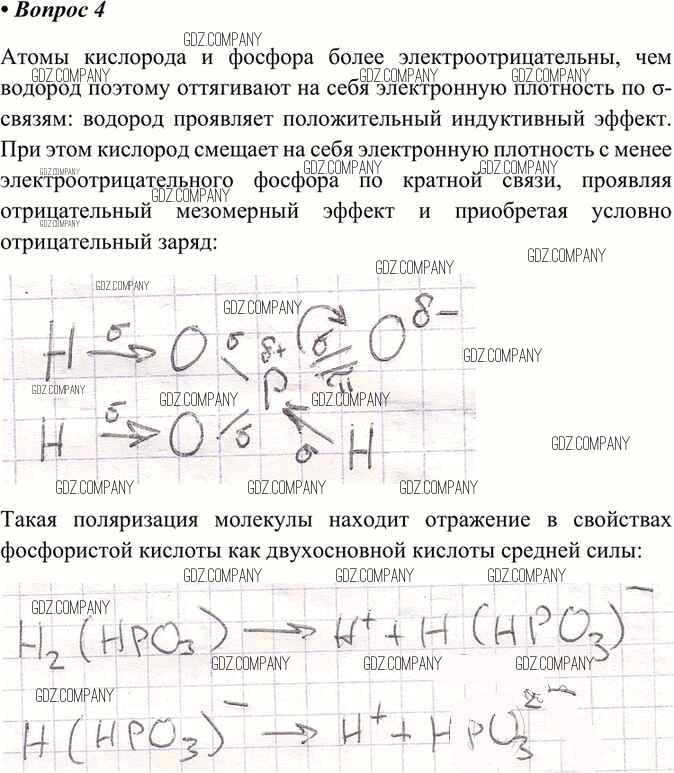 • Вопрос 4
GDZ.COMPANY
Атомы кислорода и фосфора более электроотрицательны, чем
GDZ.COMPANY GDZ.COMPANY GDZ.COMPANY
водород поэтому оттягивают на себя электронную плотность по σ-
связям: водород проявляет положительный индуктивный эффект.
GDZ.COMPANY GDZ.COMPANY
При этом кислород смещает на себя электронную плотность с менее
GDZ.COMPANY GDZ.COMPANY GDZ.COMPANY
электроотрицательного фосфора по кратной связи, проявляя
GDZ.COMPANY
отрицательный мезомерный эффект и приобретая условно
GDZ.COMPANY
отрицательный заряд:
GDZ.COMPANY
GDZ.COMPANY
GDZ.COMPANY
GDZ.COMPANY
H σ O σ δ+ σ O δ−
P π
GDZ.COMPANY
GDZ.COMPANY GDZ.COMPANY GDZ.COMPANY
H σ O σ σ H
GDZ.COMPANY
GDZ.COMPANY GDZ.COMPANY GDZ.COMPANY
Такая поляризация молекулы находит отражение в свойствах
фосфористой кислоты как двухосновной кислоты средней силы:
GDZ.COMPANY GDZ.COMPANY GDZ.COMPANY
GDZ.COMPANY
H₂(HPO₃) → H⁺ + H(HPO₃)⁻
GDZ.COMPANY GDZ.COMPANY GDZ.COMPANY
GDZ.COMPANY
H(HPO₃)⁻ → H⁺ + HPO₃²⁻
GDZ.COMPANY GDZ.COMPANY